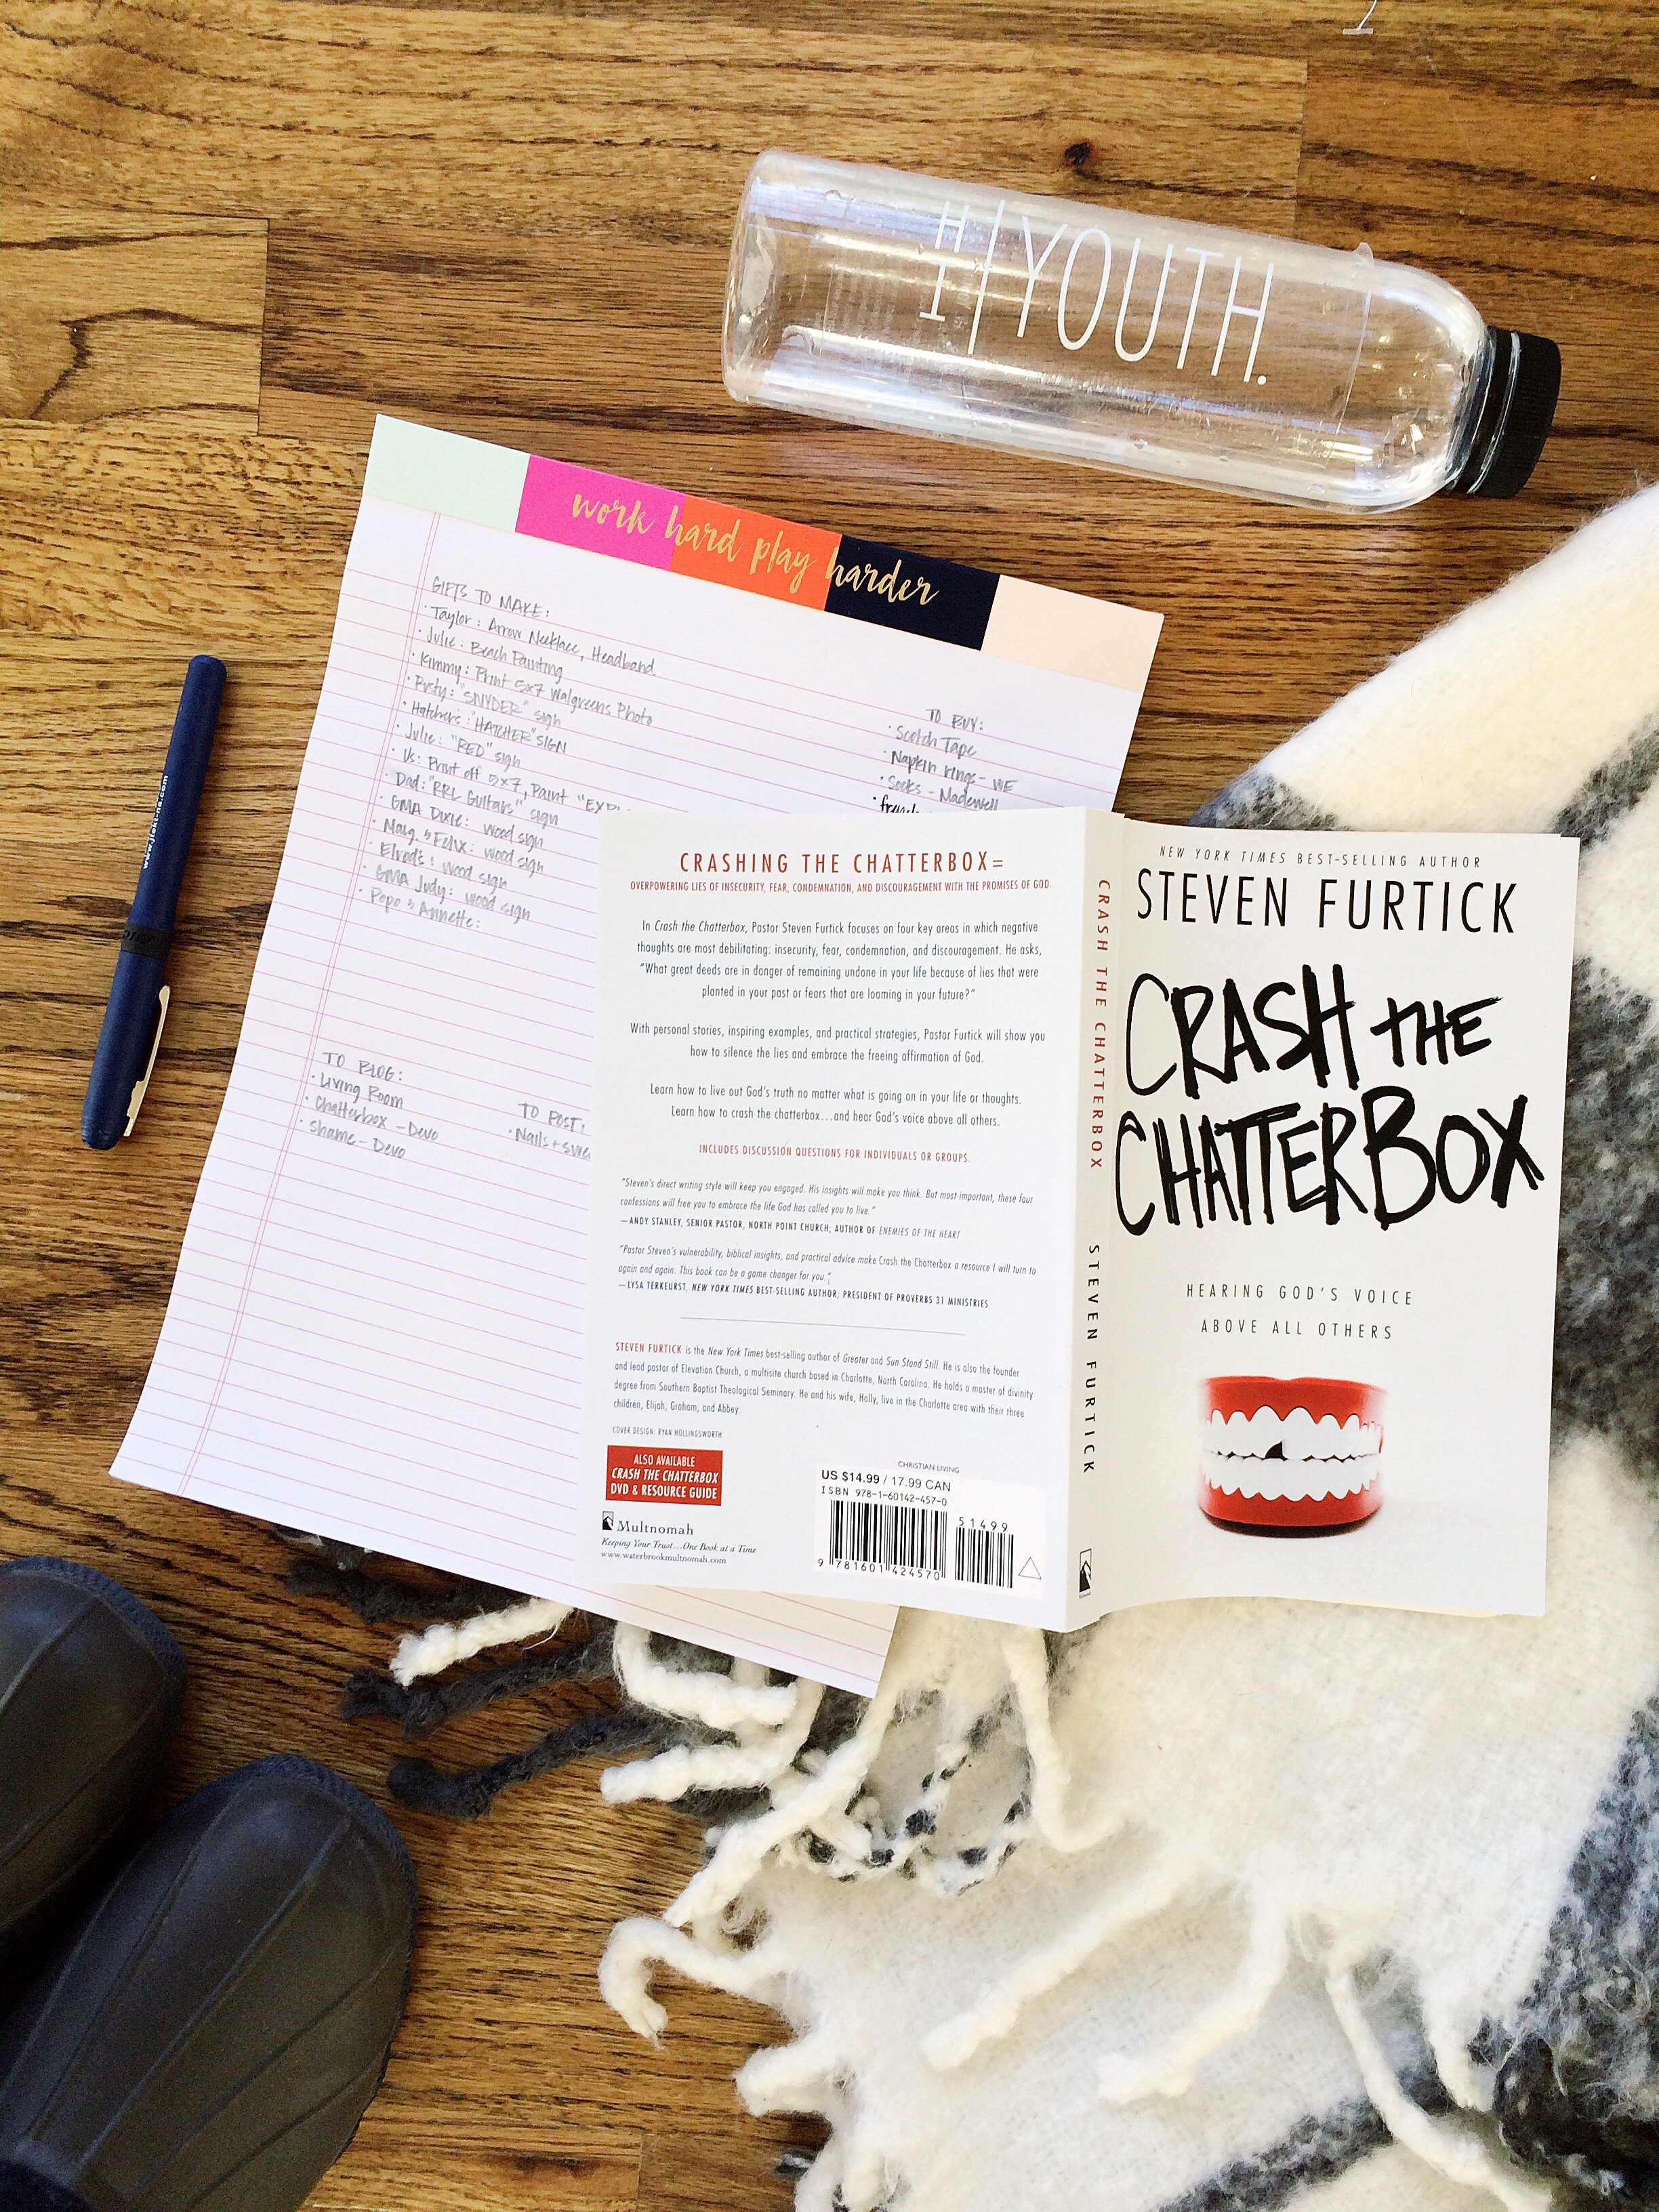 HI|YOUTH.
work hard play harder
GIFTS TO MAKE:
· Taylor: Arrow Necklace, Headband
· Julie: Beach Painting
· Kimmy: Print 5x7 Walgreens Photo
· Rusty: "SNYDER" sign
· Hatchers: "HATCHER" SIGN
· Julie: "RED" sign
· Us: Print off 5x7, Paint
· Dad: "RRL Guitars" sign
· GMA Dixie: wood sign
· Felix: wood sign
· Elrods: wood sign
· GMA Judy: wood sign
· Annette:
TO BUY:
· Scotch Tape
· Napkin rings - WE
· Socks - Madewell
TO BLOG:
· Living Room
· Chatterbox - Devo
· Shame - Devo
TO POST:
· Nails +
CRASHING THE CHATTERBOX=
OVERPOWERING LIES OF INSECURITY, FEAR, CONDEMNATION, AND DISCOURAGEMENT WITH THE PROMISES OF GOD.
In Crash the Chatterbox, Pastor Steven Furtick focuses on four key areas in which negative
thoughts are most debilitating: insecurity, fear, condemnation, and discouragement. He asks,
"What great deeds are in danger of remaining undone in your life because of lies that were
planted in your past or fears that are looming in your future?"
With personal stories, inspiring examples, and practical strategies, Pastor Furtick will show you
how to silence the lies and embrace the freeing affirmation of God.
Learn how to live out God's truth no matter what is going on in your life or thoughts.
Learn how to crash the chatterbox...and hear God's voice above all others.
INCLUDES DISCUSSION QUESTIONS FOR INDIVIDUALS OR GROUPS.
"Steven's direct writing style will keep you engaged. His insights will make you think. But most important, these four
confessions will free you to embrace the life God has called you to live."
—ANDY STANLEY, SENIOR PASTOR, NORTH POINT CHURCH; AUTHOR OF ENEMIES OF THE HEART
"Pastor Steven's vulnerability, biblical insights, and practical advice make Crash the Chatterbox a resource I will turn to
again and again. This book can be a game changer for you."
—LYSA TERKEURST, NEW YORK TIMES BEST-SELLING AUTHOR, PRESIDENT OF PROVERBS 31 MINISTRIES
STEVEN FURTICK is the New York Times best-selling author of Greater and Sun Stand Still. He is also the founder
and lead pastor of Elevation Church, a multisite church based in Charlotte, North Carolina. He holds a master of divinity
degree from Southern Baptist Theological Seminary. He and his wife, Holly, live in the Charlotte area with their three
children, Elijah, Graham, and Abbey.
COVER DESIGN: RYAN HOLLINGSWORTH
ALSO AVAILABLE
CRASH THE CHATTERBOX
DVD & RESOURCE GUIDE
Multnomah
Keeping Your Trust...One Book at a Time
www.waterbrookmultnomah.com
CHRISTIAN LIVING
US $14.99 / 17.99 CAN
ISBN 978-1-60142-457-0
51499
9 781601 424570
CRASH THE CHATTERBOX STEVEN FURTICK
NEW YORK TIMES BEST-SELLING AUTHOR
STEVEN FURTICK
CRASH THE
CHATTERBOX
HEARING GOD'S VOICE
ABOVE ALL OTHERS